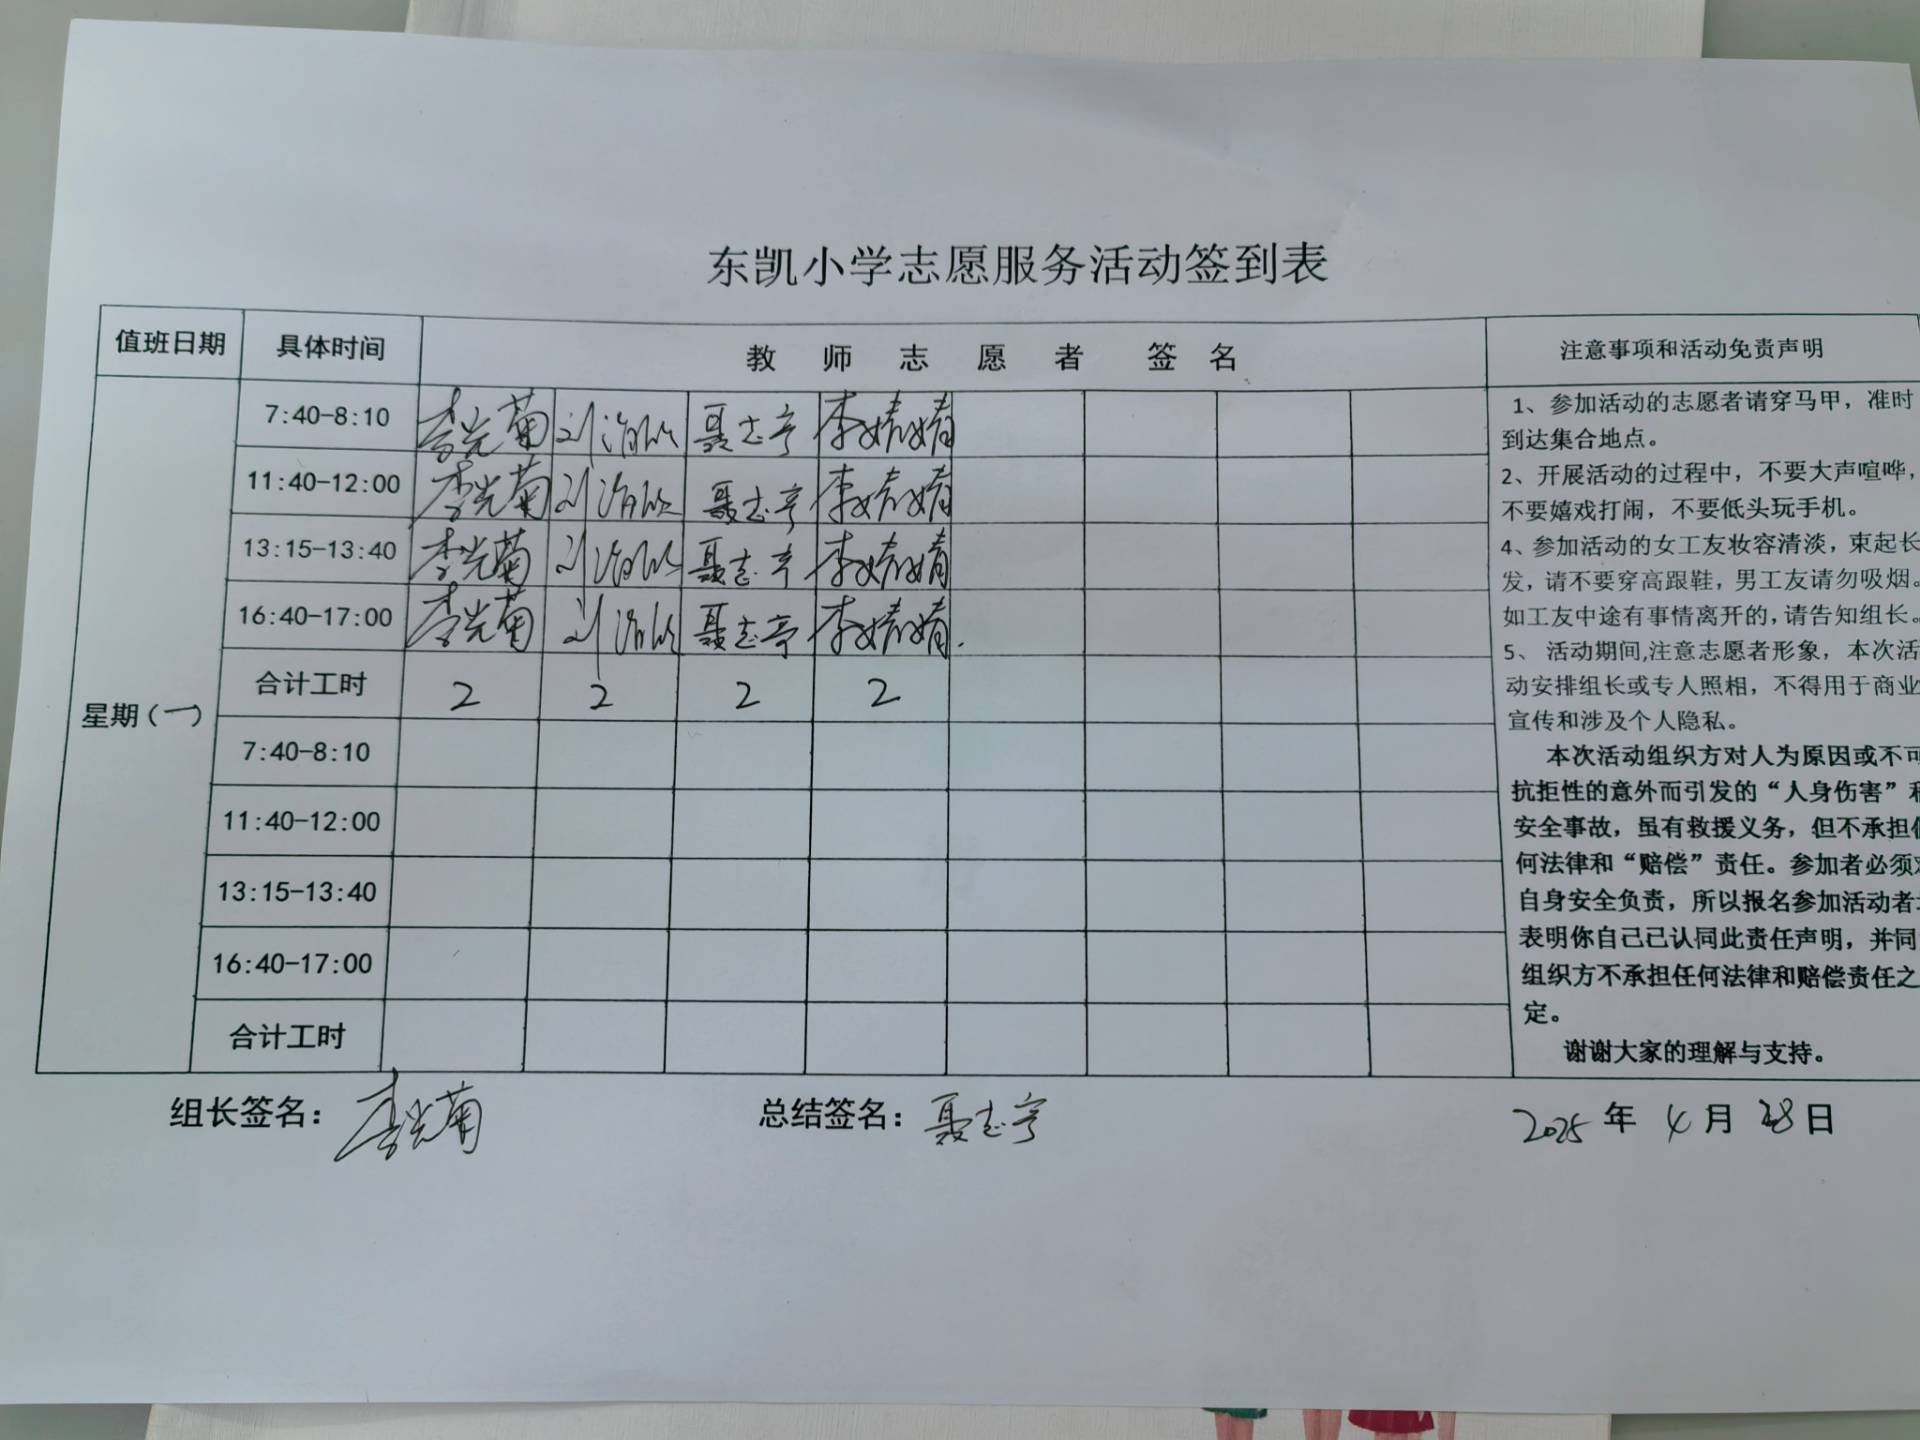 东凯小学志愿服务活动签到表
值班日期 具体时间 教师志愿者 签名 注意事项和活动免责声明
星期(一)
7:40-8:10 李光菊 刘 聂志亭 李婧婧
11:40-12:00 李光菊 刘 聂志亭 李婧婧
13:15-13:40 李光菊 刘 聂志亭 李婧婧
16:40-17:00 李光菊 刘 聂志亭 李婧婧.
合计工时 2 2 2 2
7:40-8:10
11:40-12:00
13:15-13:40
16:40-17:00
合计工时
1、参加活动的志愿者请穿马甲，准时
到达集合地点。
2、开展活动的过程中，不要大声喧哗，
不要嬉戏打闹，不要低头玩手机。
4、参加活动的女工友妆容清淡，束起长
发，请不要穿高跟鞋，男工友请勿吸烟。
如工友中途有事情离开的,请告知组长。
5、活动期间,注意志愿者形象，本次活
动安排组长或专人照相，不得用于商业
宣传和涉及个人隐私。
本次活动组织方对人为原因或不可
抗拒性的意外而引发的“人身伤害”和
安全事故，虽有救援义务，但不承担
何法律和“赔偿”责任。参加者必须
自身安全负责，所以报名参加活动者
表明你自己已认同此责任声明，并同
组织方不承担任何法律和赔偿责任之
定。
谢谢大家的理解与支持。
组长签名：李光菊 总结签名：聂志亭 2025年4月28日